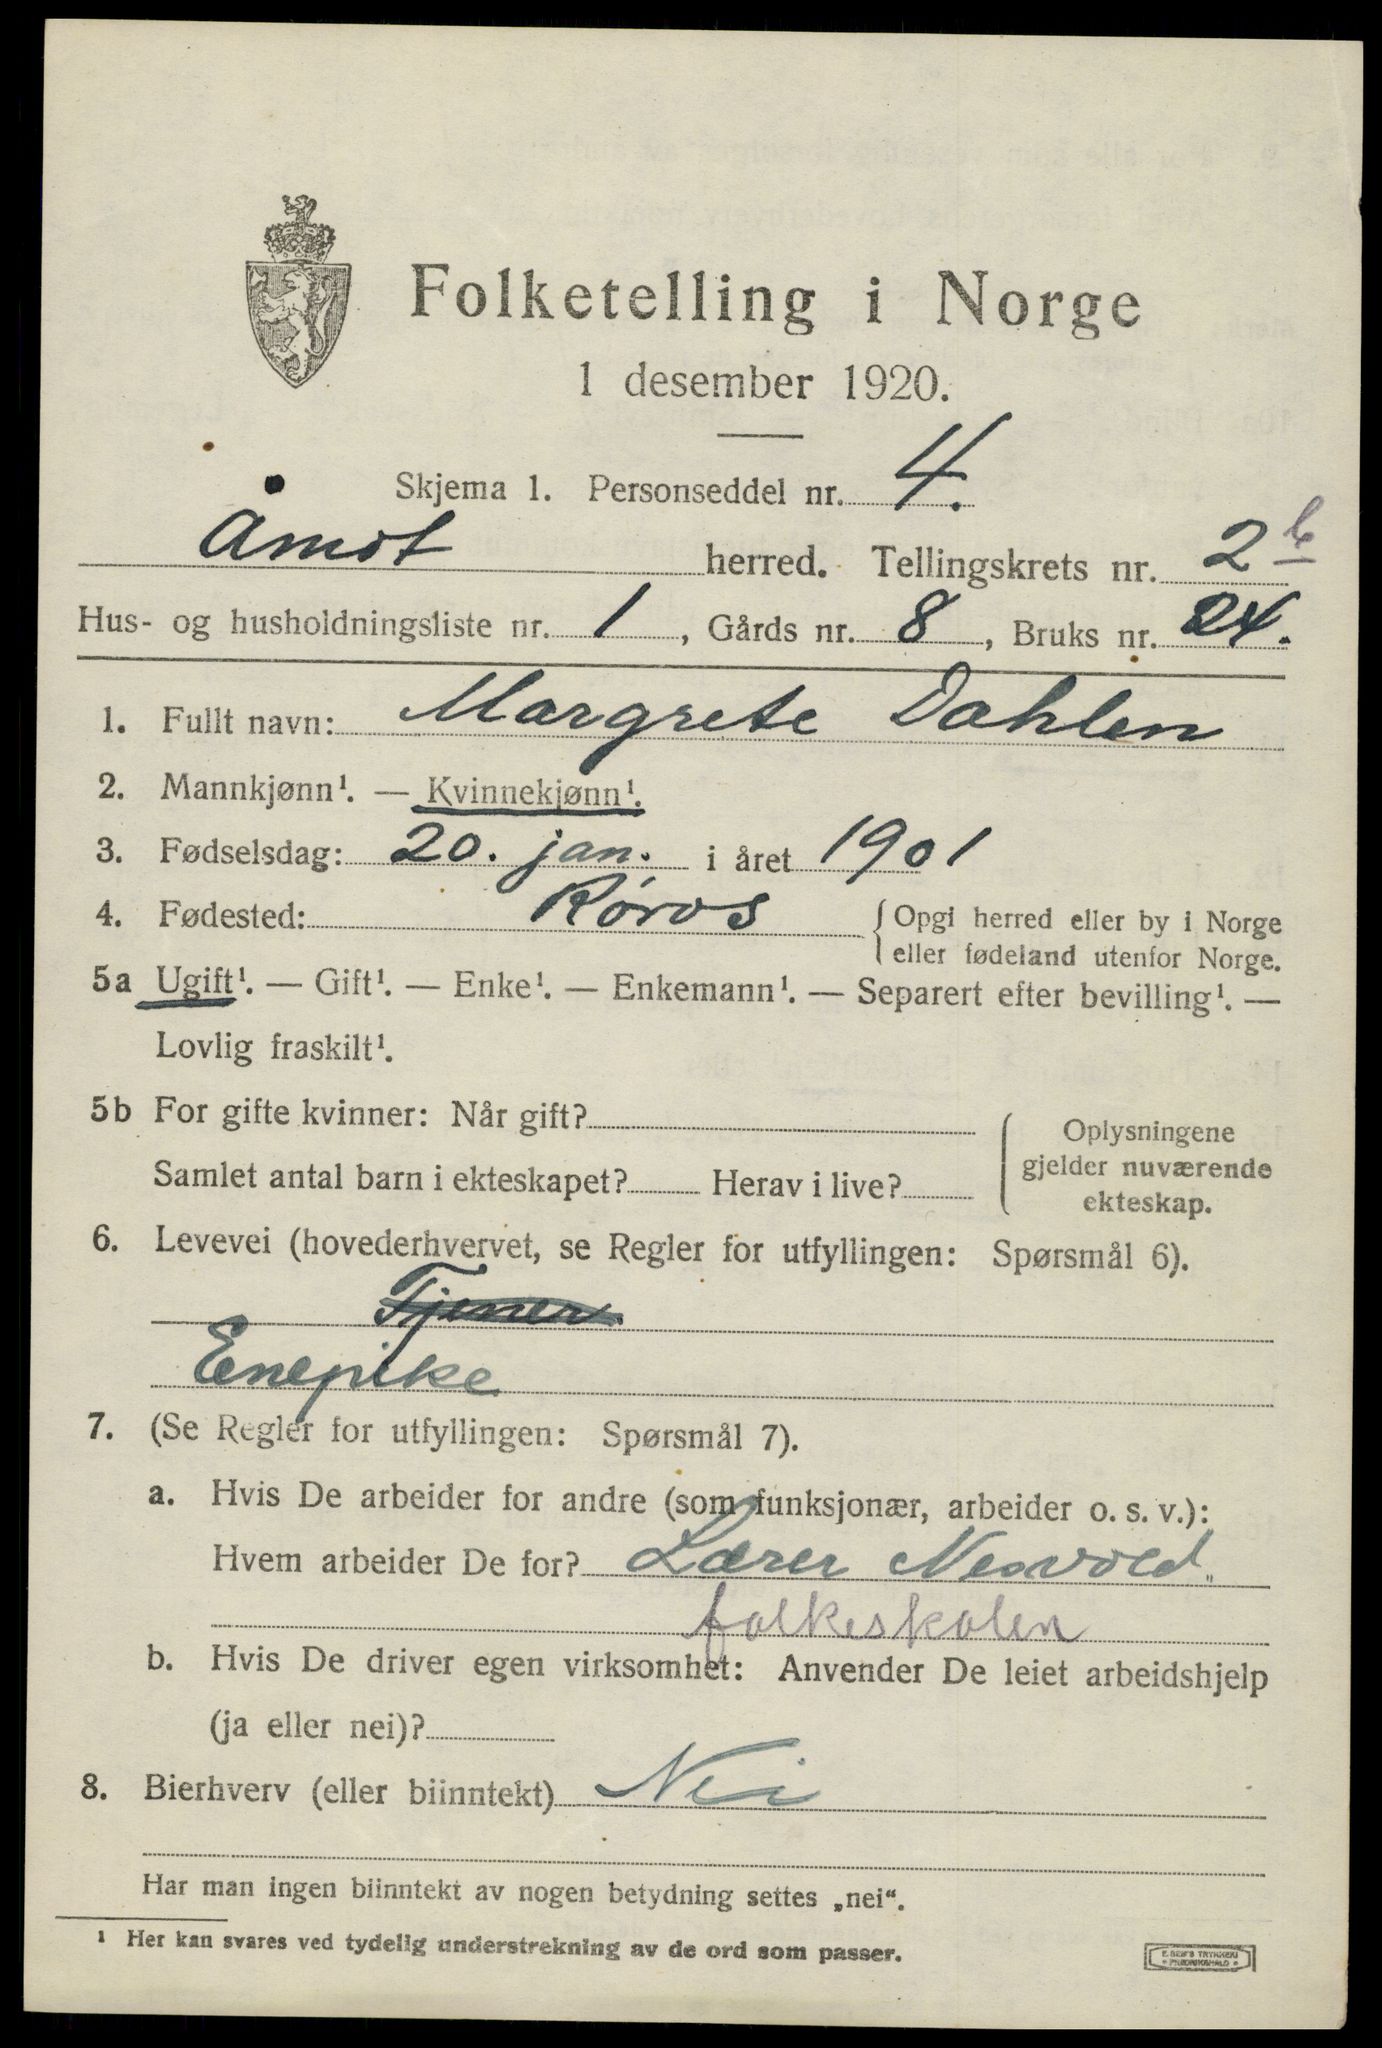 Folketelling i Norge
1 desember 1920.
Skjema 1. Personseddel nr. 4.
Åmot herred. Tellingskrets nr. 2 b
Hus- og husholdningsliste nr. 1, Gårds nr. 8, Bruks nr. 24.
1. Fullt navn: Margrete Dahlen
2. Mannkjønn¹. — Kvinnekjønn¹.
3. Fødselsdag: 20. jan. i året 1901
4. Fødested: Røros {Opgi herred eller by i Norge
eller fødeland utenfor Norge.
5a Ugift¹. — Gift¹. — Enke¹. — Enkemann¹. — Separert efter bevilling¹. —
Lovlig fraskilt¹.
5b For gifte kvinner: Når gift?
Samlet antal barn i ekteskapet? Herav i live?
Oplysningene
gjelder nuværende
ekteskap.
6. Levevei (hovederhvervet, se Regler for utfyllingen: Spørsmål 6).
Tjener
Enepike
7. (Se Regler for utfyllingen: Spørsmål 7).
a. Hvis De arbeider for andre (som funksjonær, arbeider o. s. v.):
Hvem arbeider De for? Lærer Nesvold
folkeskolen
b. Hvis De driver egen virksomhet: Anvender De leiet arbeidshjelp
(ja eller nei)?
8. Bierhverv (eller biinntekt) Nei
Har man ingen biinntekt av nogen betydning settes „nei“.
¹ Her kan svares ved tydelig understrekning av de ord som passer.
E. SEM'S TRYKKERI
FREDRIKSHALD